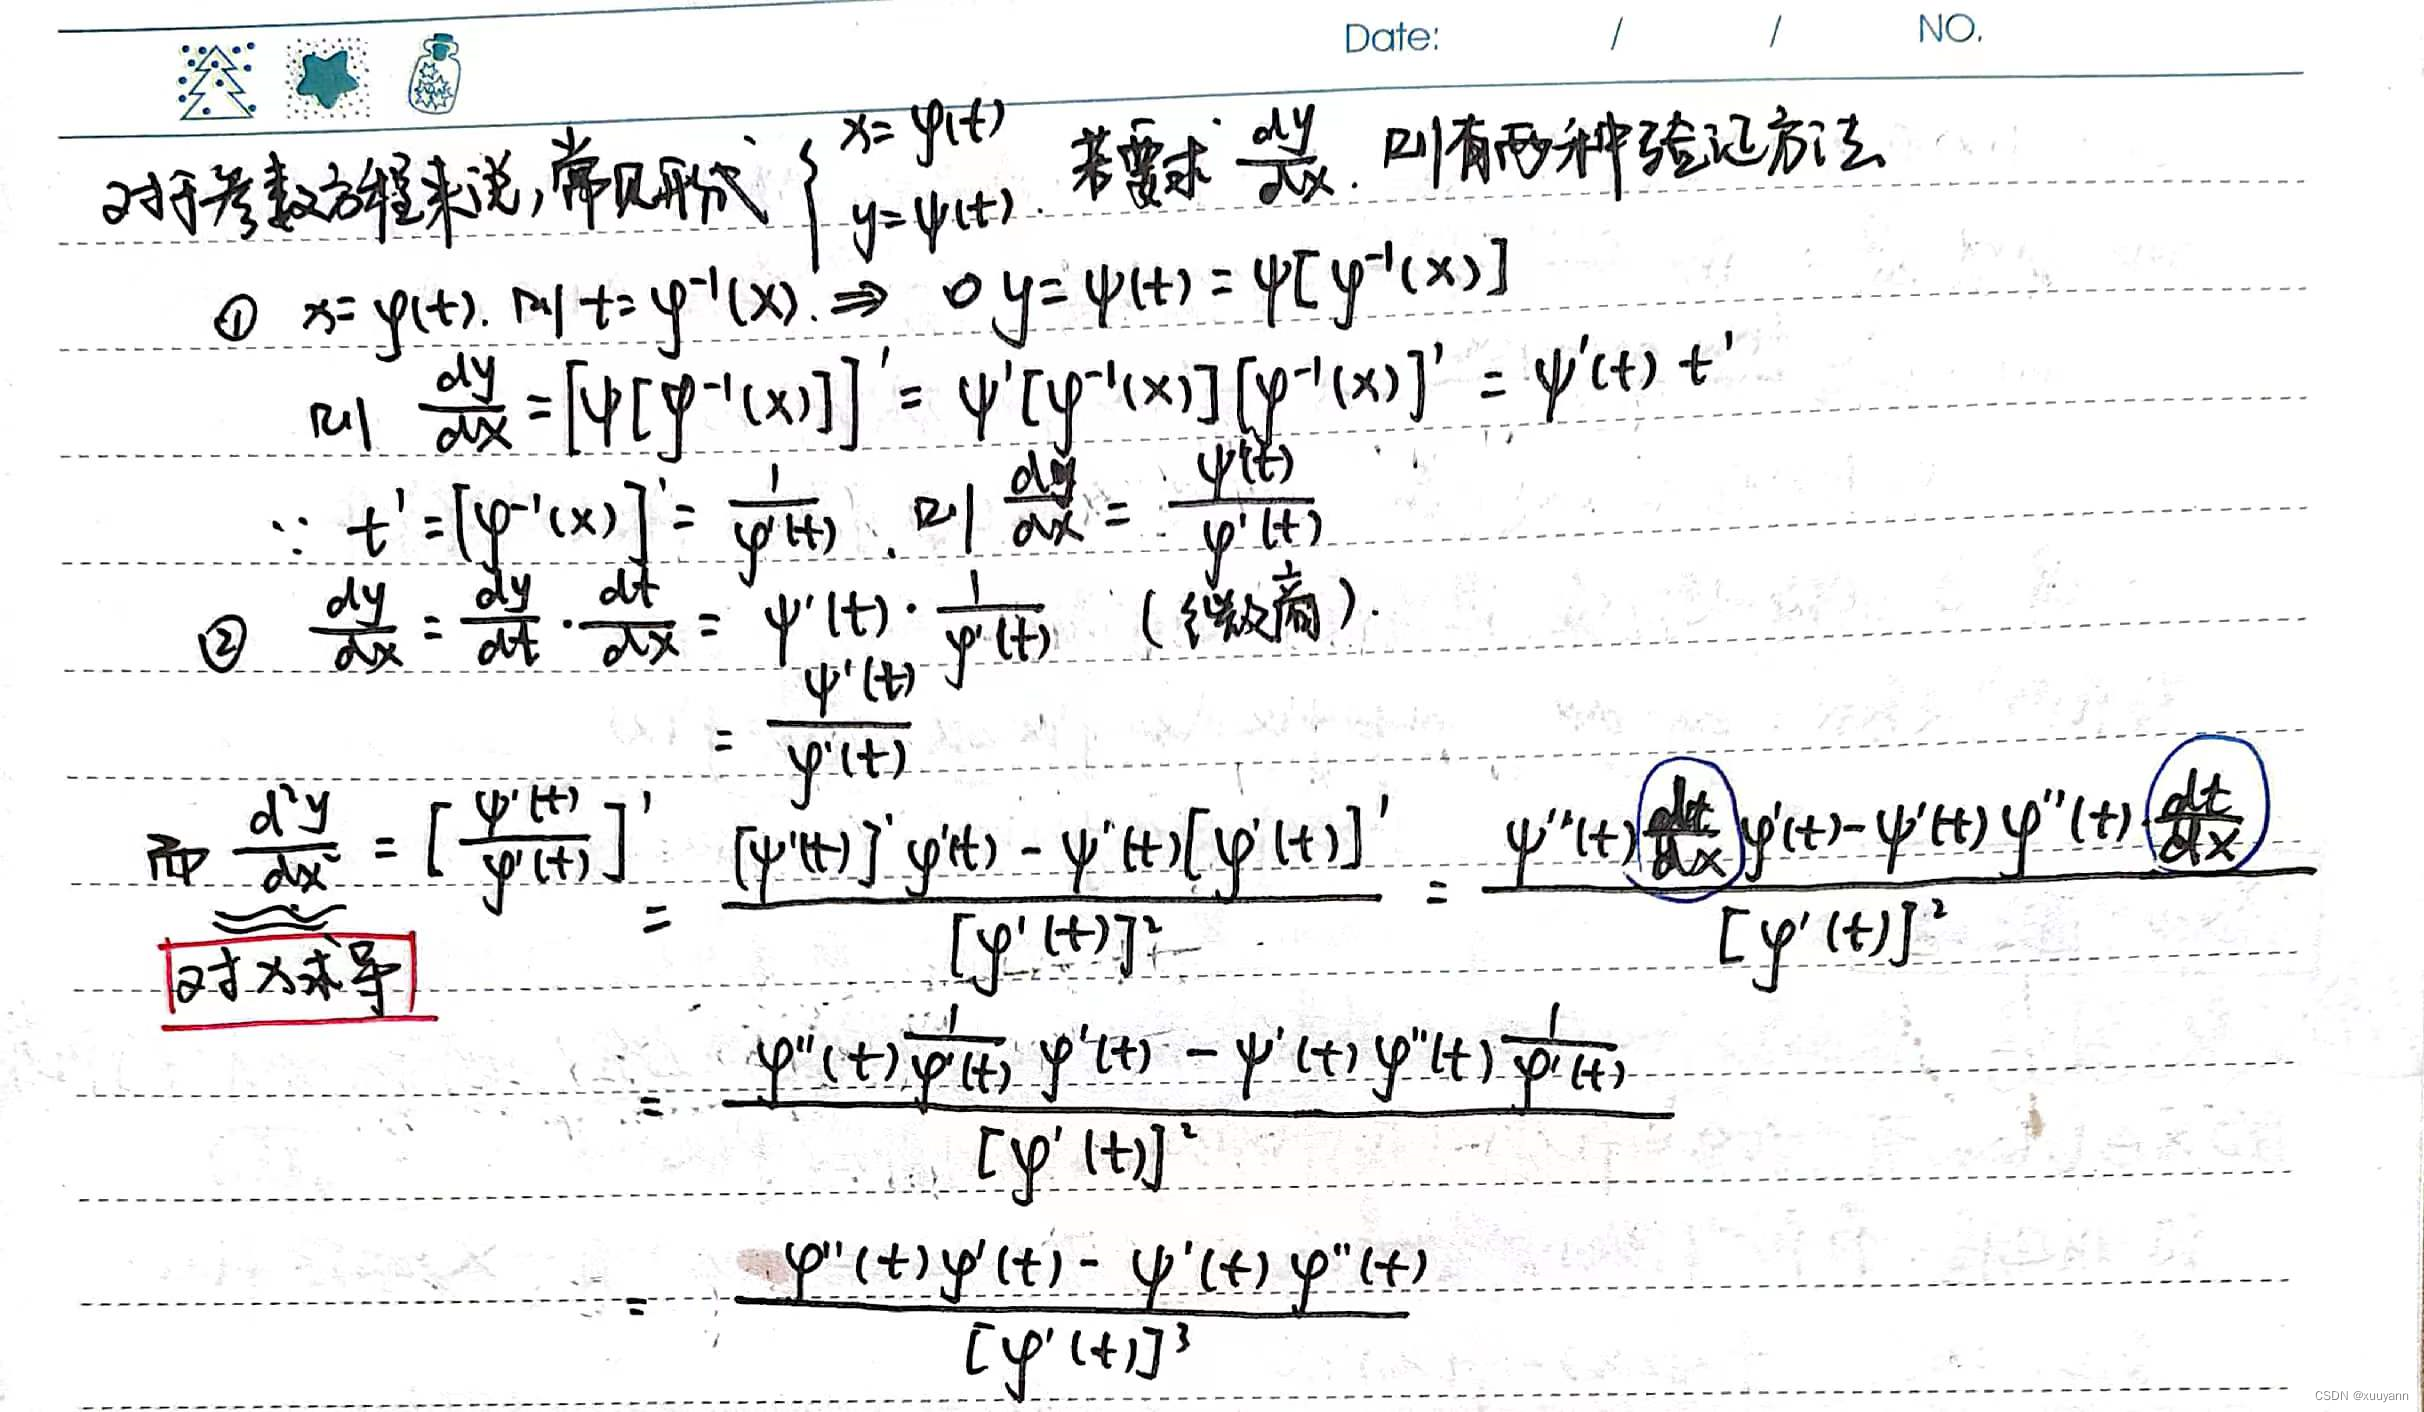 Date: / / NO.
对于参数方程来说,常见形式 { x=φ(t) y=ψ(t). 若要求 dy/dx. 则有两种验证方法
① x=φ(t). 则 t=φ⁻¹(x). ⇒ y=ψ(t)=ψ[φ⁻¹(x)]
则 dy/dx=[ψ[φ⁻¹(x)]]'=ψ'[φ⁻¹(x)][φ⁻¹(x)]'=ψ'(t) t'
∵ t'=[φ⁻¹(x)]'=1/φ'(t). 则 dy/dx=ψ'(t)/φ'(t)
② dy/dx=dy/dt·dt/dx=ψ'(t)·1/φ'(t) (微商).
=ψ'(t)/φ'(t)
而 d²y/dx²=[ψ'(t)/φ'(t)]'=([ψ'(t)]'φ'(t)-ψ'(t)[φ'(t)]')/[φ'(t)]²=(ψ''(t) dt/dx φ'(t)-ψ'(t)φ''(t)·dt/dx)/[φ'(t)]²
对x求导
=(φ''(t) 1/φ'(t) φ'(t)-ψ'(t)φ''(t) 1/φ'(t))/[φ'(t)]²
=(φ''(t)φ'(t)-ψ'(t)φ''(t))/[φ'(t)]³
CSDN @xuuyann